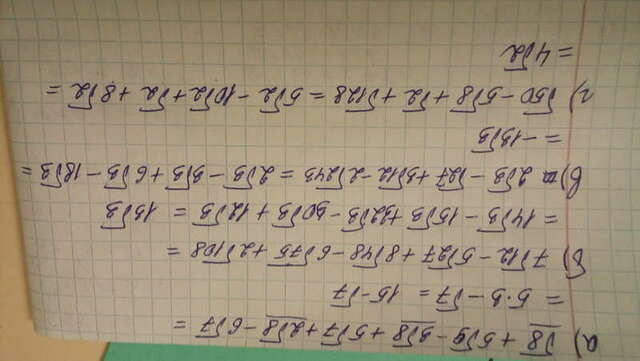 а) √8 + 5√9 - 3√8 + 5√7 + 2√8 - 6√7 =
= 5·3 - √7 = 15 - √7
б) 7√12 - 5√27 + 8√48 - 6√75 + 2√108 =
= 14√3 - 15√3 + 32√3 - 30√3 + 12√3 = 13√3
в) 2√3 - √27 + 3√12 - 2√243 = 2√3 - 3√3 + 6√3 - 18√3 =
= -13√3
г) √50 - 5√8 + √2 + √128 = 5√2 - 10√2 + √2 + 8√2 =
= 4√2